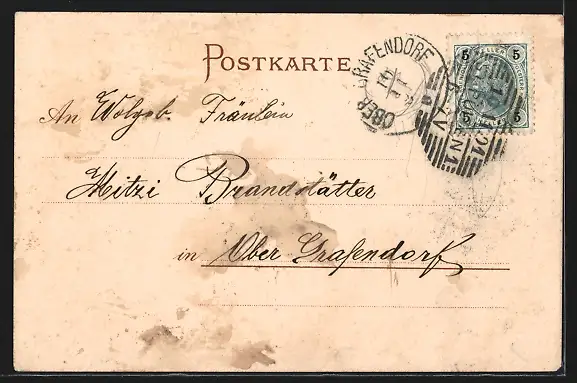 POSTKARTE
OBER GRAFENDORF
5 5
5 5
An Wolgeb. Fräulein
Mitzi Brandstätter
in Ober Grafendorf